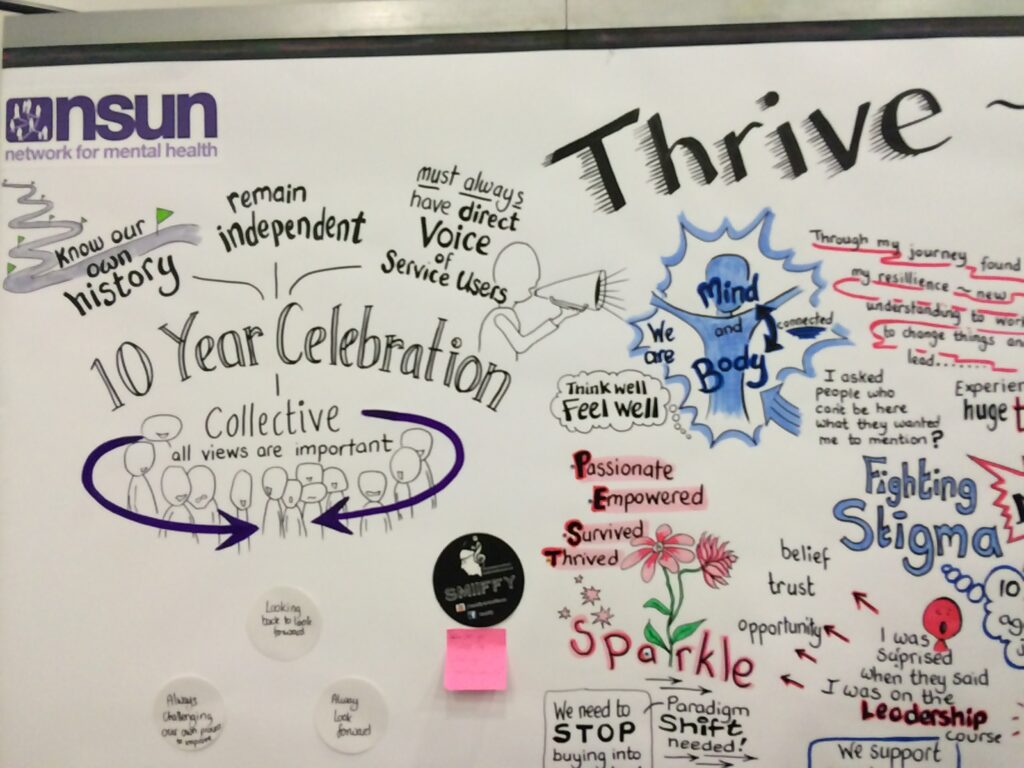 nsun
network for mental health
Know our
own
history
remain
independent
must always
have direct
Voice
of
Service Users
10 Year Celebration
Collective
all views are important
Looking
back to look
forward
Always
challenging
our own
to improve
Always
Look
forward
SMIIFFY
Thrive ~
We
are
Mind
and
Body
connected
Think well
Feel well
Through my
journey found
my resillience ~ new
understanding to
to change things
lead........
I asked
people who
can't be here
what they wanted
me to mention?
huge
Passionate
Empowered
Survived
Thrived
Sparkle
Fighting
Stigma
10
belief
trust
opportunity
I was
Suprised
when they said
I was on the
Leadership
course
We need to
STOP
buying into
Paradigm
Shift
needed!
We support